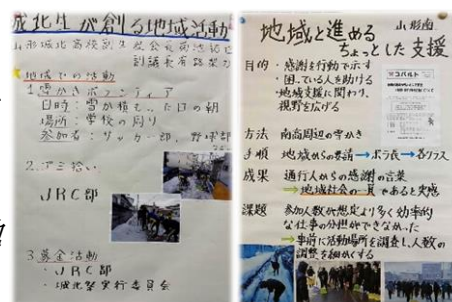 城北生が創る地域活動
山形城北高校
地域での活動
1. 雪かきボランティア
日時：雪が積もった日の朝
場所：学校の周り
参加者：サッカー部、野球部
2. ゴミ拾い
JRC部
3. 募金活動
・JRC部
・城北祭実行委員会
地域と進める
山形南
ちょっとした支援
目的・感謝を行動で示す
・困っている人を助ける
・地域支援に関わり、
視野を広げる
コバルト
方法 南高周辺の雪かき
手順 地域からの要請→ボラ長→各クラス
成果 通行人からの感謝の言葉
⇒地域社会の一員であると実感
課題 参加人数が想定より多く効率的
な仕事の分担ができなかった
⇒事前に活動場所を調査し、人数の
調整を細かくする